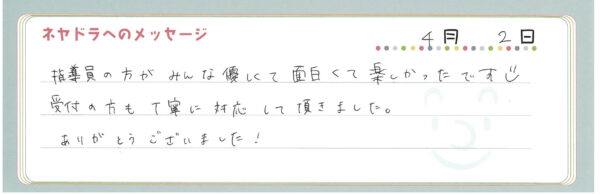 ネヤドラへのメッセージ
4月 2日
指導員の方が みんな優しくて 面白くて 楽しかったです
受付の方も 丁寧に対応して頂きました。
ありがとうございました!